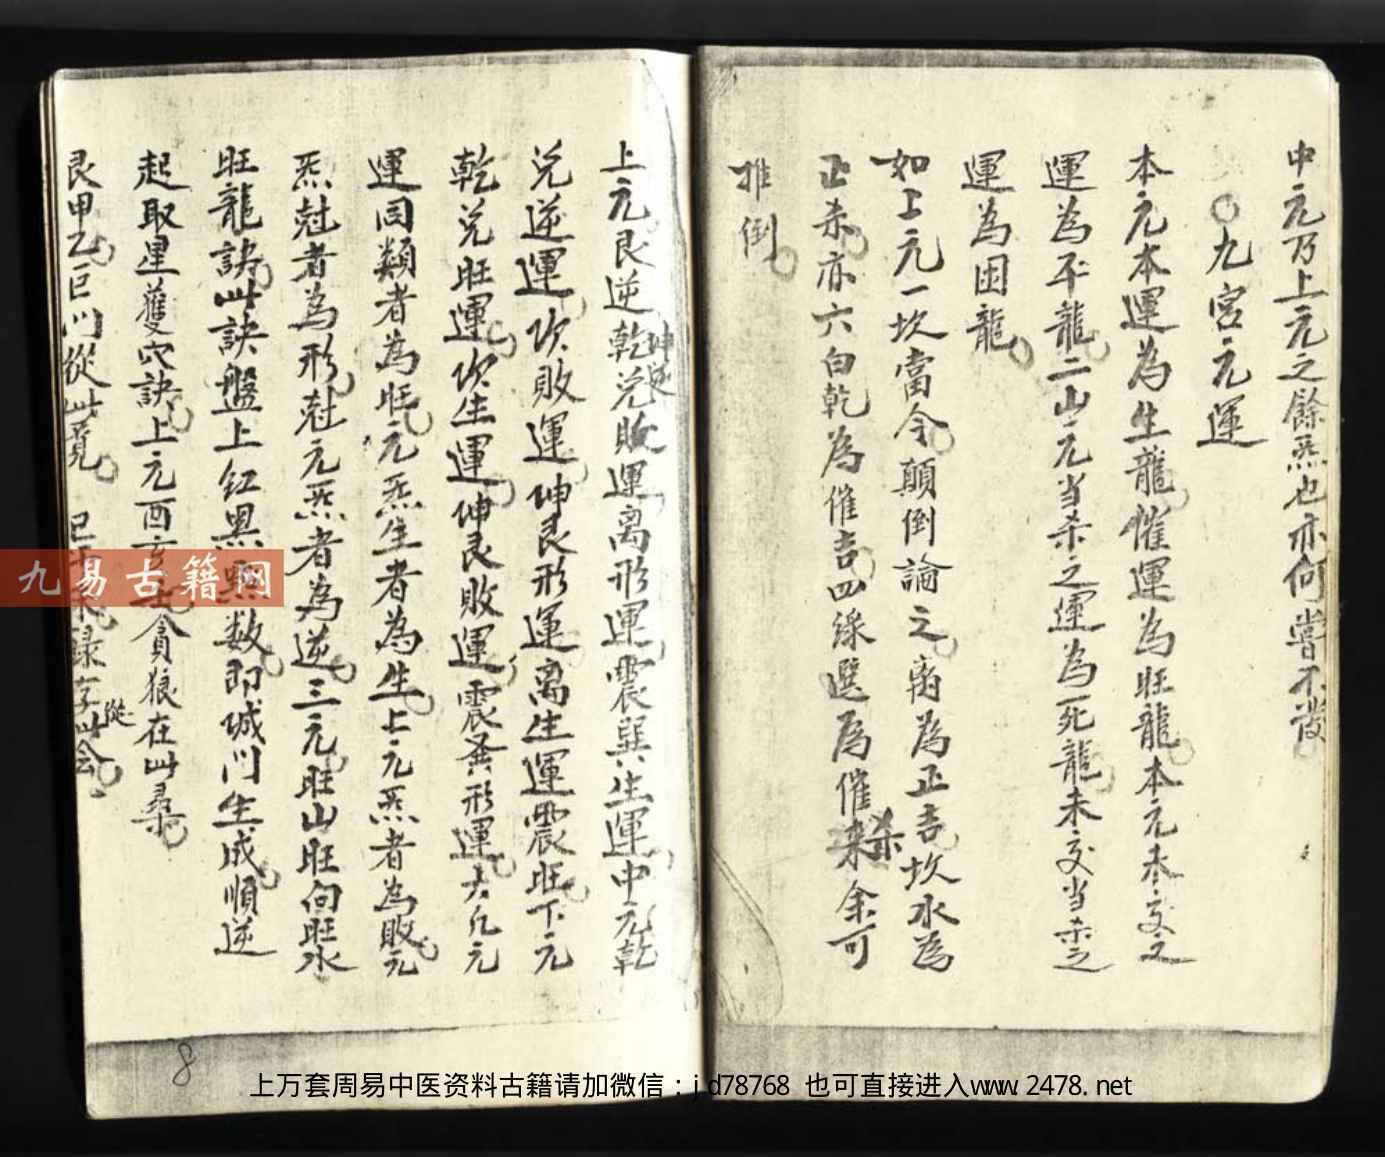 中元乃上元之餘炁也亦何嘗不發
○九宮元運
本元本運為生龍催運為旺龍本元未交之
運為平龍二山元当杀之運為死龍未交当杀之
運為困龍
如上元一坎當令顛倒論之离為正吉坎水為
正杀亦六白乾為催吉四綠巽為催杀余可
推倒
上元艮逆乾兌敗運离形運震巽生運中元乾
坤逆
兌逆運坎敗運坤艮形運离生運震旺下元
乾兌旺運坎生運坤艮敗運震巽形運大凡元
運同類者為旺元炁生者為生上元炁者為敗元
炁尅者為形尅元炁者為逆三元旺山旺向旺水
旺龍訣此訣盤上红黑點数即城门生成順逆
起取星獲穴訣上元酉貪狼在此尋
艮甲乙巨门從此覓 巳録存從此会
8
九易古籍网
上万套周易中医资料古籍请加微信：jd78768 也可直接进入www.2478.net